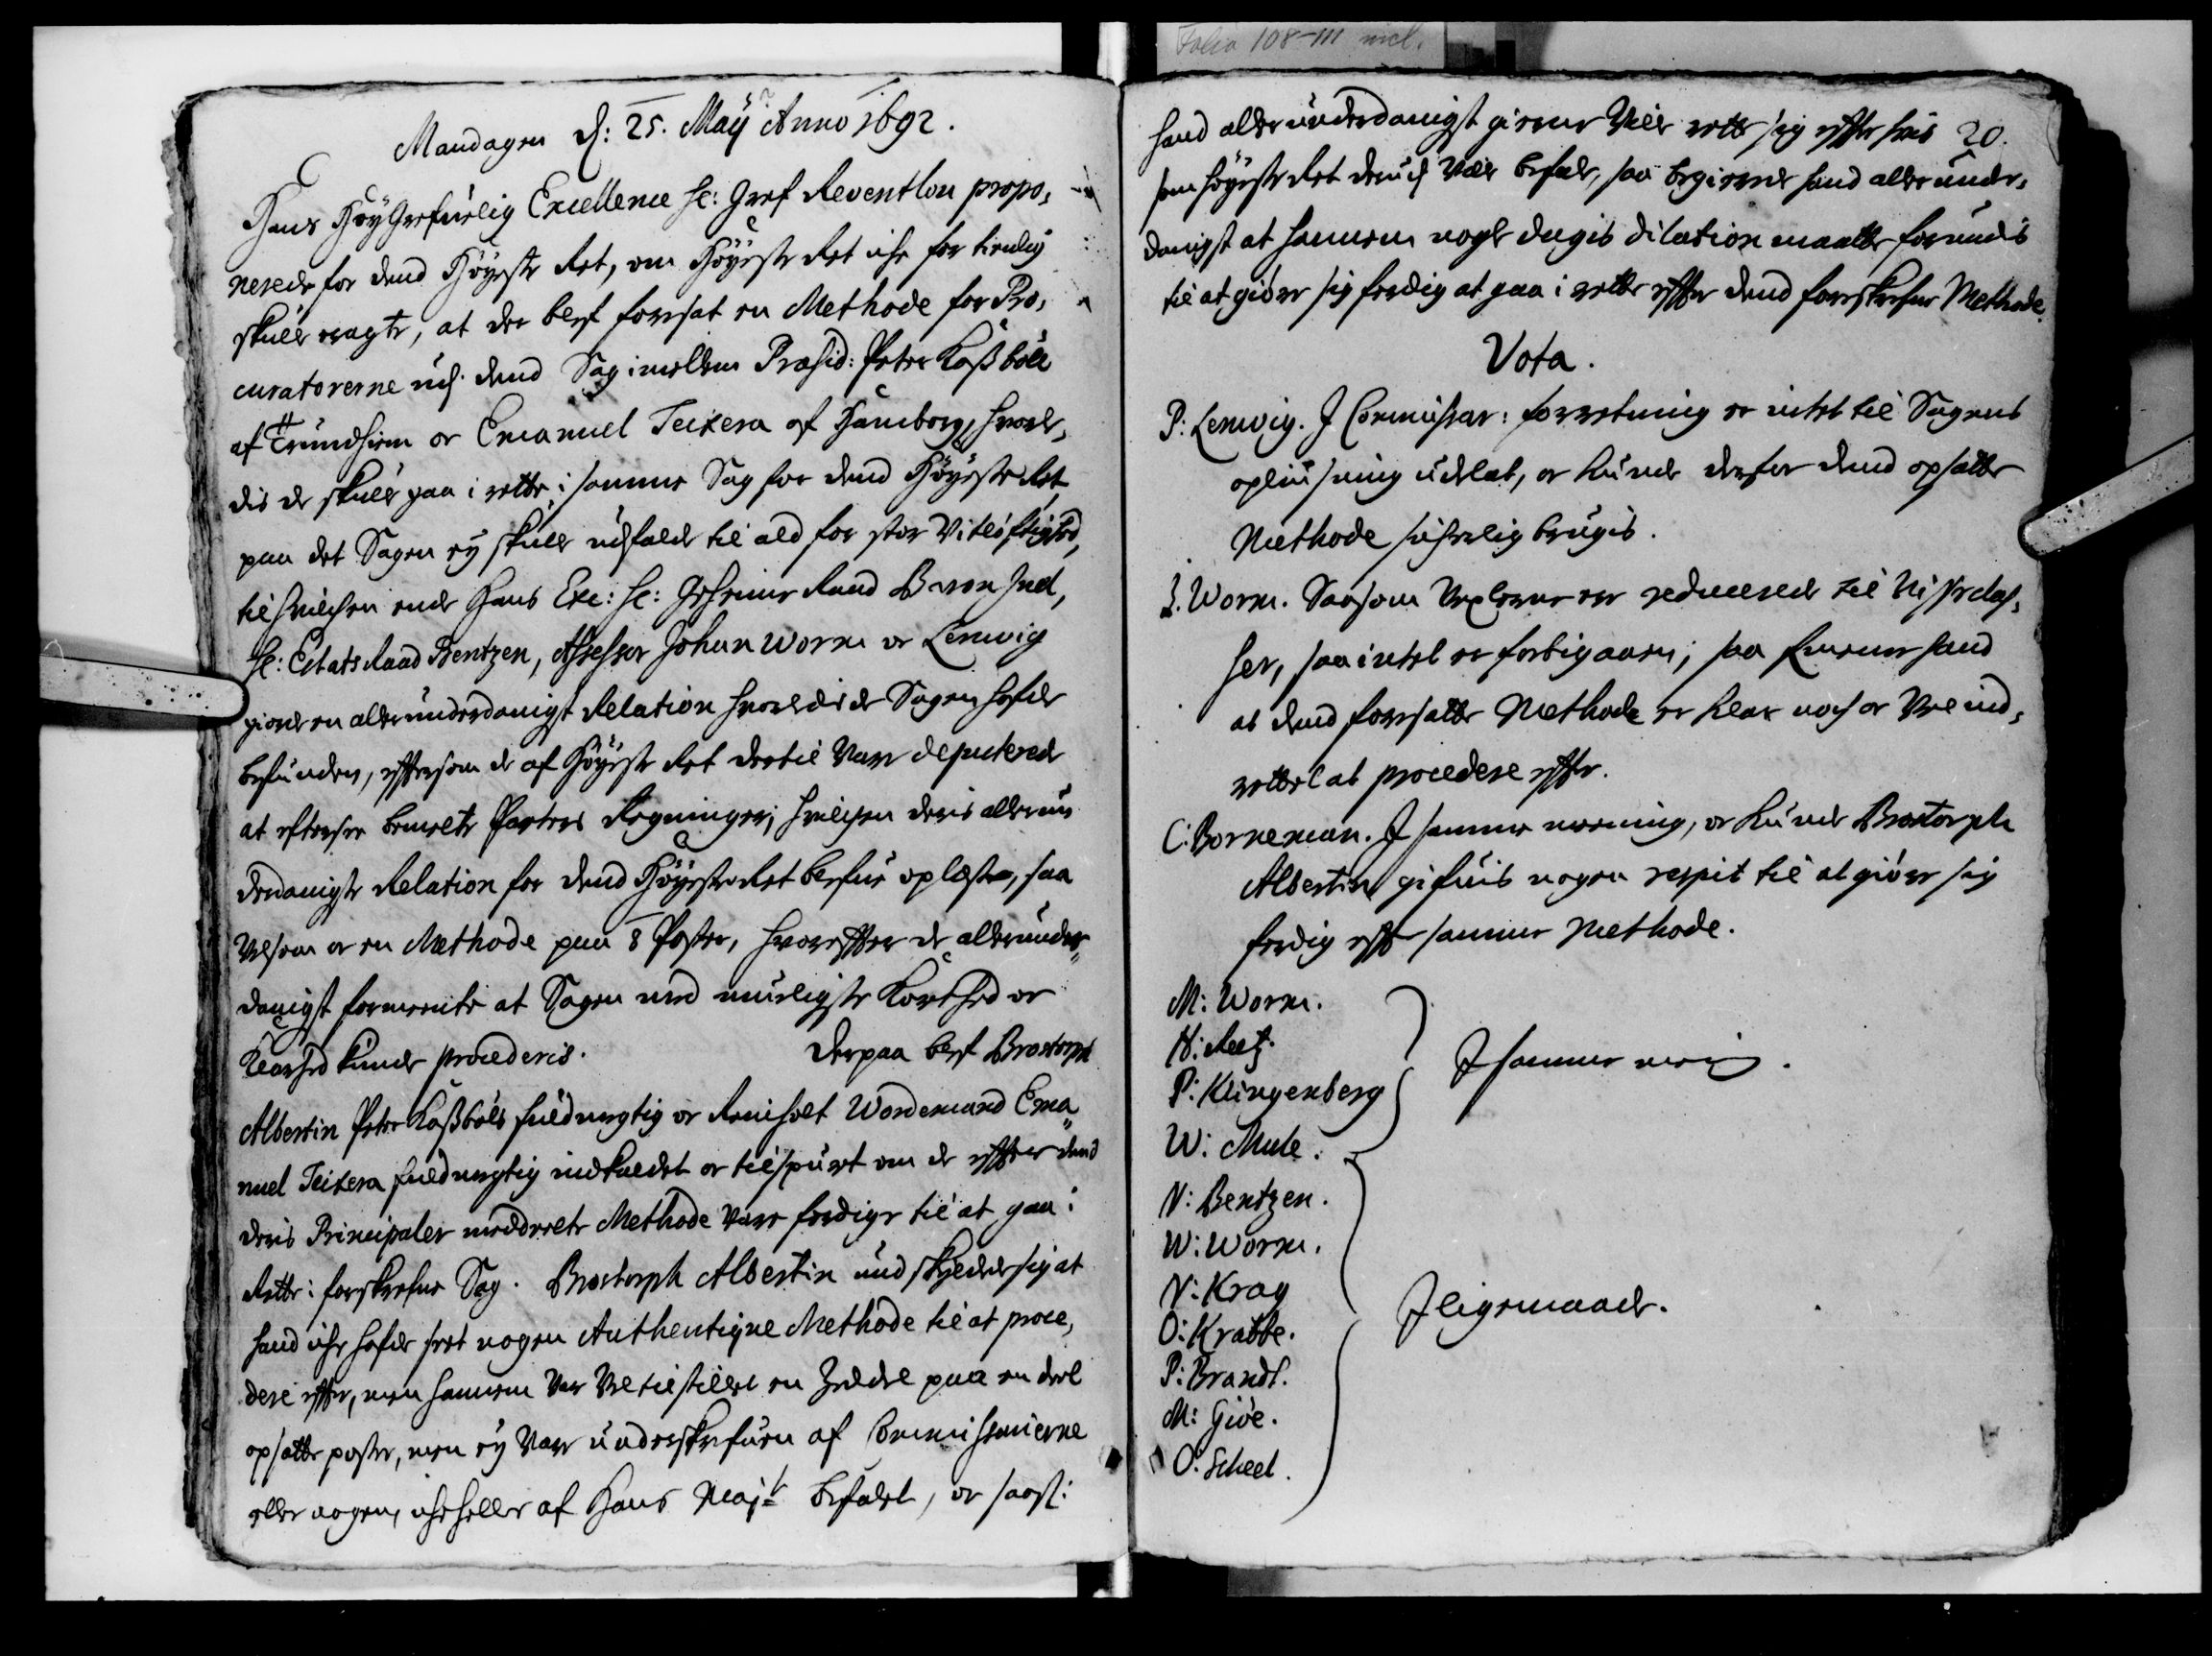 Folio 108-111 incl.
Mandagen d: 25. Maÿ Anno 1692.
Hans HöyGrefuelig Excellence Hr: Gref Reventlou propo¸
nerede for dend Höyeste Ret, om Höyeste Ret iche for tienlig
skulle eragte, at der blef forfat en Methode for Pro¸
curatorerne udj dend Sag imellem Præsid: Peter Kaßböll
af Trundhiem oc Emanuel Teixera af Hamborg, hvorle¸
dis de skulle gaa i rette i samme Sag for dend Höyeste Ret
paa det Sagen ey skulle udfalde til alt for stor Vitløftighed,
til huilchen ende Hans Exc: Hr: Geheime Raad Baron Juel,
Hr: Etats Raad Bentzen, Assessor Johan Worm oc Lemvig
giorde en allerunderdanigst Relation hvorledis de Sagen hafde
befunden, efftersom de af Höyeste Ret dertil Vare deputerede
at effterse bemelte Parters Regninger; huilchen deris allerun
derdanigste Relation for dend Höyeste Ret blefue oplæste, saa
Velsom oc en Methode paa 8 Poster, hvoreffter de allerunder¸
danigst formeente at Sagen med mueligste Korthed oc
Klarhed kunde procederis. Derpaa blef Brostorph
Albertin Peter Kaßbölls fuldmegtig oc Reinholt Wordemand Ema¸
nuel Teixera fuldmegtig indkaldet oc tilspurt om de effter dend
deris Principaler meddeelte Methode Vare ferdige til at gaa i
Rette i forskrefne Sag. Brostorph Albertin undskyldede sig at
hand iche hafde seet nogen Authentique Methode til at proce¸
dere effter, men hannem Var Vel tilstillet en Zeddel paa en deel
opsatte poster, men ey Var underskrefuen af Commissarierne
eller nogen, iche heller af Hans Mayt: befalet, oc saasom
hand allerunderdanigst gierne Ville rette sig effter huis 20.
som Höyeste Ret derudj Ville befale, saa begierede hand allerunder¸
danigst at hannem nogle dagis dilation maatte forundis
til at giöre sig ferdig at gaa i rette effter dend forskrefne Methode.
Vota.
P: Lemvig. J Commissar: forretning er intet til Sagens
opliusning udelat, oc kunde derfor dend opsatte
Methode sicherlig brugis.
J. Worm. Saasom Vexlerne er reducerede til Visse clas¸
ser, saa intet er forbigaaen; saa meener hand
at dend forfatte Methode er klar noch oc Vel ind¸
rettet at procedere effter.
C: Borneman. J samme meening, oc kunde Brostorph
Albertin gifuis nogen respit til at giöre sig
ferdig effter samme Methode.
M: Worm.
H: Reetz.
P: Klingenberg
W: Mule.
J samme meening.
N: Bentzen.
W: Worm.
N: Krag
O: Krabbe.
P: Brandt.
M: Giöe.
O: Scheel.
J ligemaade.